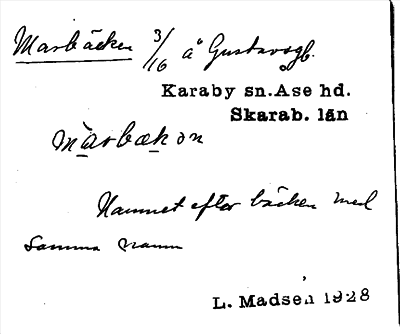 Marbäcken 3/16 å Gustavsgb.
Karaby sn. Ase hd.
Skarab. län
màrbækɔn
Namnet efter bäcken med
samma namn
L. Madsen 1928